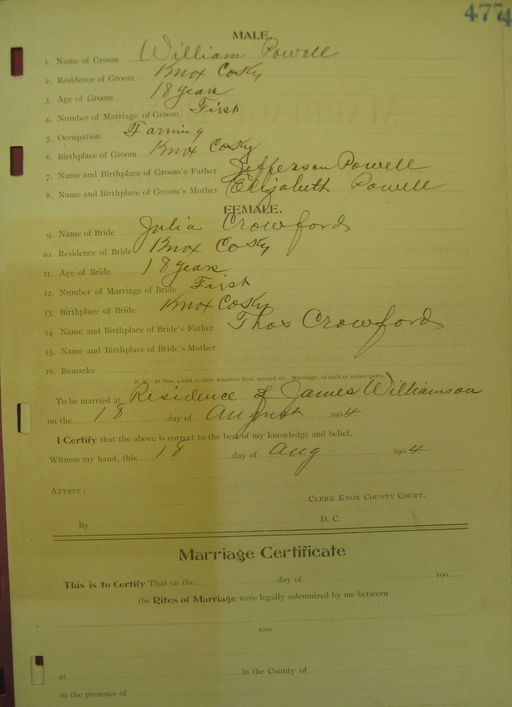 4774
MALE.
1. Name of Groom William Powell
2. Residence of Groom Knox Co Ky
3. Age of Groom 18 years
4. Number of Marriage of Groom First
5. Occupation Farming
6. Birthplace of Groom Knox Co Ky
7. Name and Birthplace of Groom's Father Jefferson Powell
8. Name and Birthplace of Groom's Mother Elizabeth Powell
FEMALE.
9. Name of Bride Julia Crowford
10. Residence of Bride Knox Co Ky
11. Age of Bride 18 years
12. Number of Marriage of Bride First
13. Birthplace of Bride Knox Co Ky
14. Name and Birthplace of Bride's Father Thos Crowford
15. Name and Birthplace of Bride's Mother
16. Remarks
N. B. At Nos. 4 and 12 state whether first, second etc., Marriage of each or either party
To be married at Residence of James Williamson
on the 18 day of August 1904
I Certify that the above is correct to the best of my knowledge and belief.
Witness my hand, this 18 day of Aug 1904
ATTEST:
CLERK KNOX COUNTY COURT.
By D. C.
Marriage Certificate
This is to Certify That on the day of 190
the Rites of Marriage were legally solemnized by me between
AND
at in the County of
in the presence of